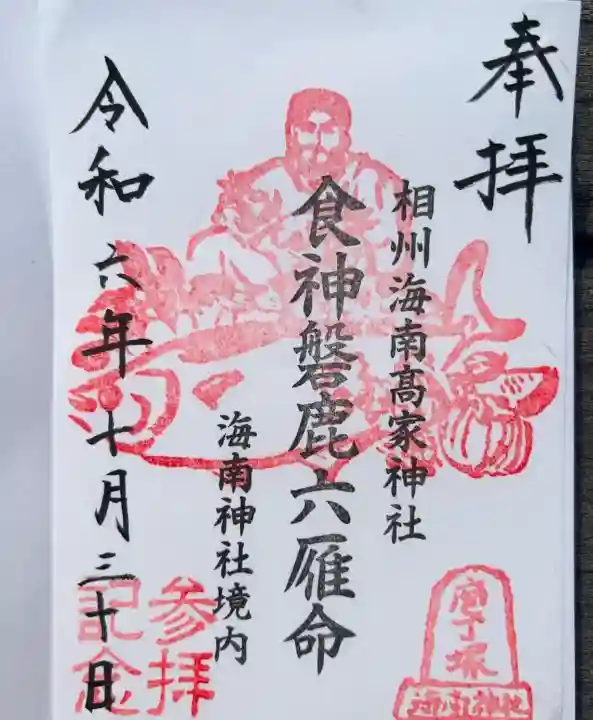 奉拝
相州海南高家神社
食神磐鹿六雁命
海南神社境内
令和六年十月三十日
参拝
記念
庖丁塚
海南神社